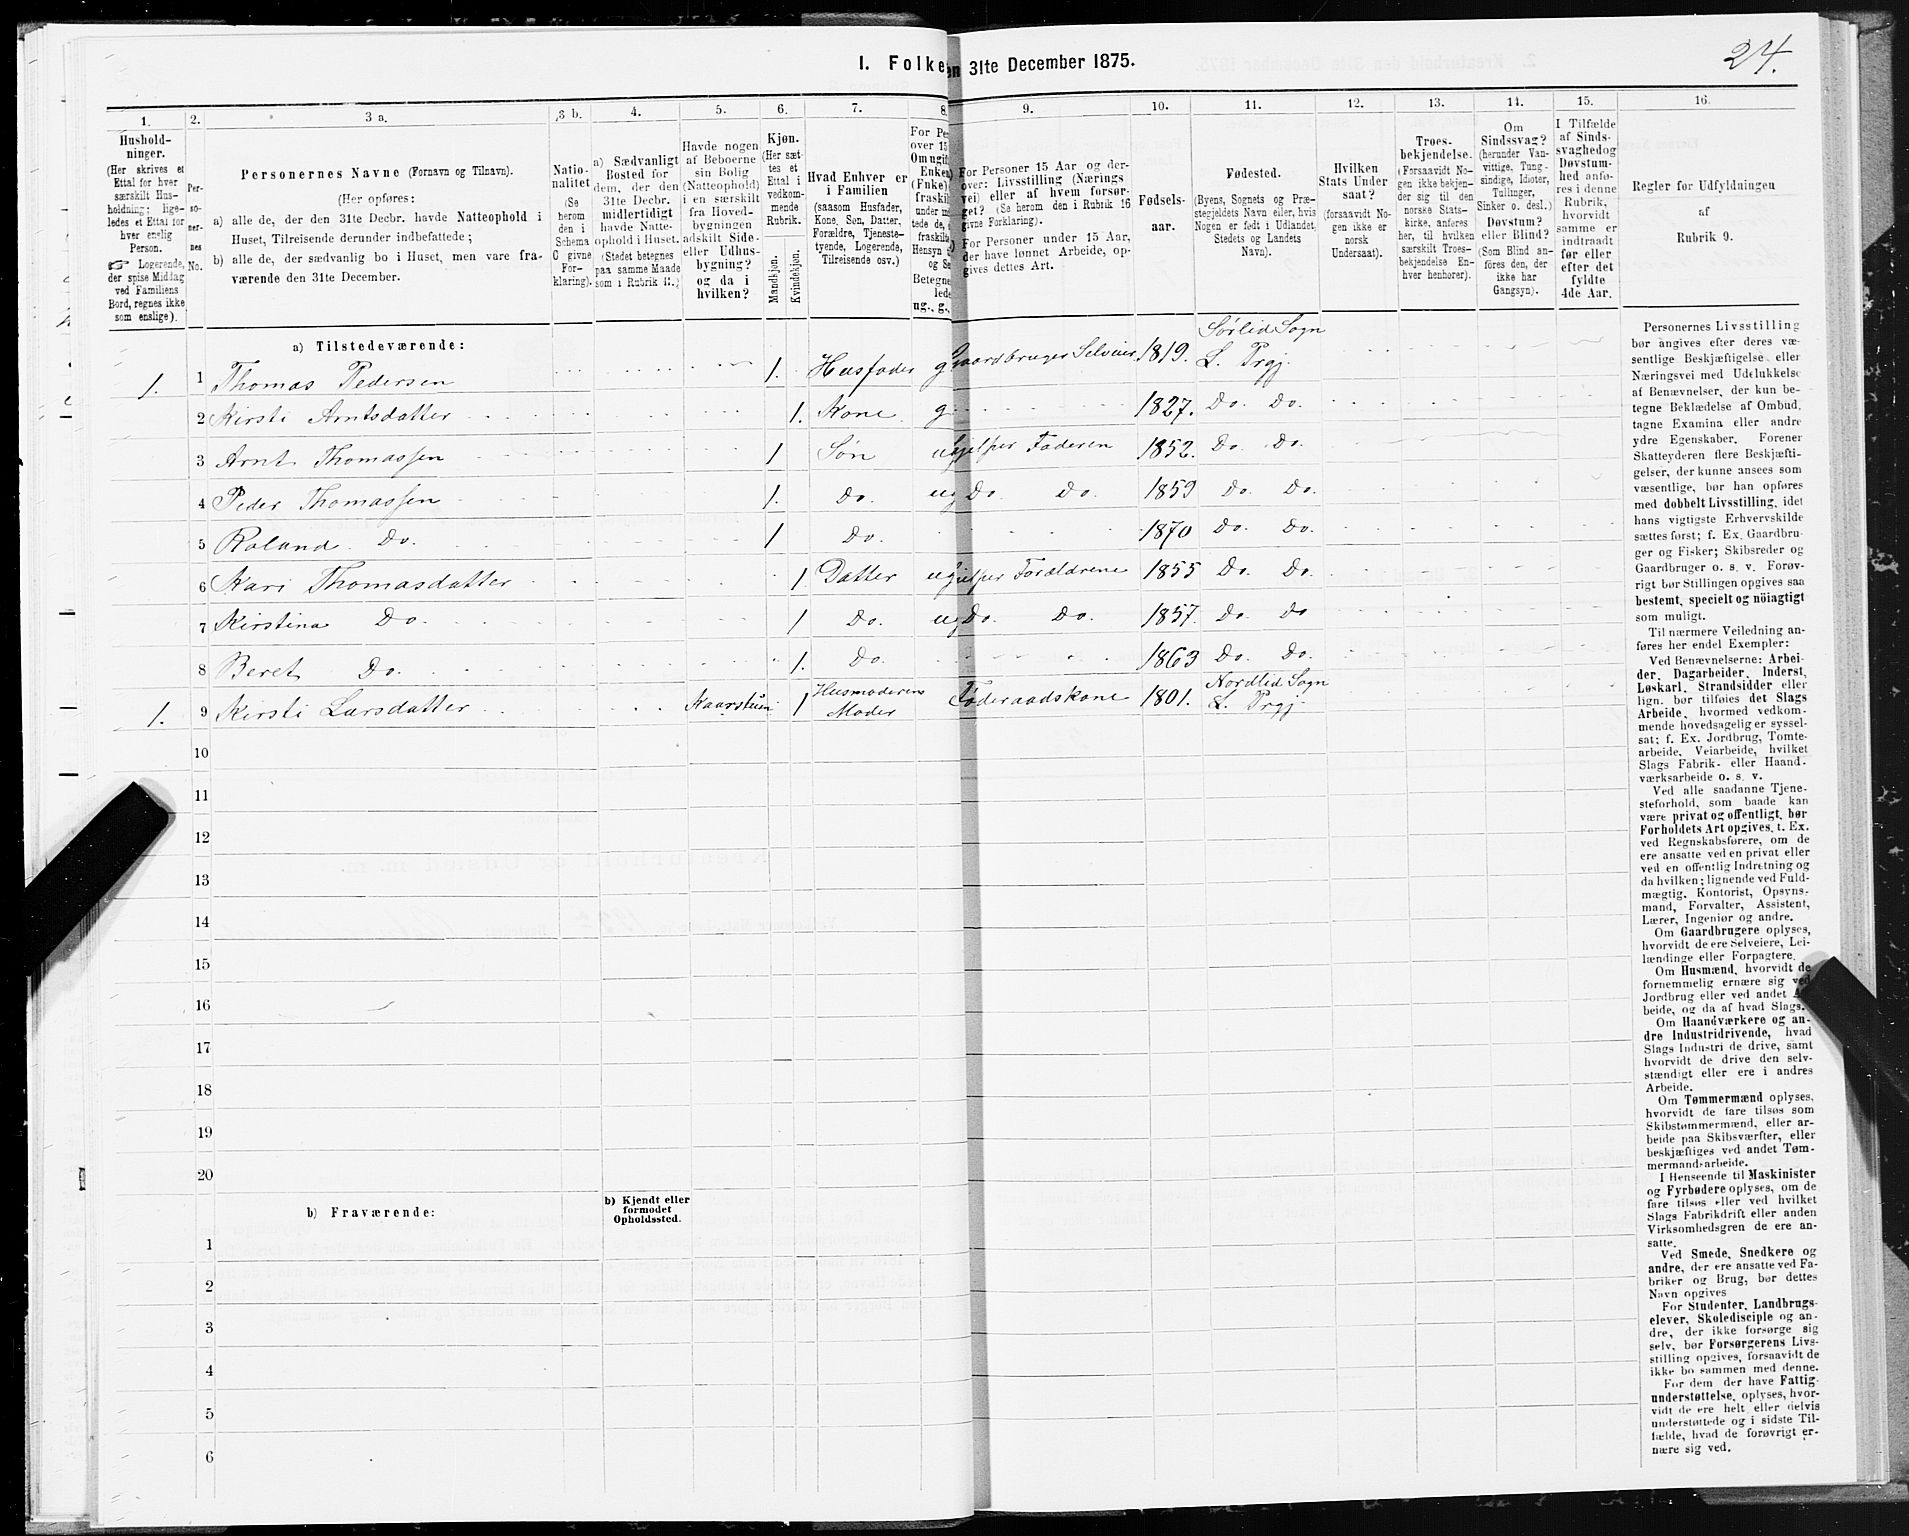 24.
I. Folke en 31te December 1875.
1. 2. 3 a. 3 b. 4. 5. 6. 7. 8. 9. 10. 11. 12. 13. 14. 15. 16.
Hushold-
ninger.
(Her skrives et
Ettal for hver
særskilt Hus-
holdning; lige-
ledes et Ettal for
hver enslig
Person.
☞ Logerende,
der spise Middag
ved Familiens
Bord, regnes ikke
som enslige).
Per-
so-
ner-
nes
No.
Personernes Navne (Fornavn og Tilnavn).
(Her opføres:
a) alle de, der den 31te Decbr. havde Natteophold i
Huset, Tilreisende derunder indbefattede;
b) alle de, der sædvanlig bo i Huset, men vare fra-
værende den 31te December.
Natio-
nalitet
(Se
herom
den i
Schema
C givne
For-
klaring).
a) Sædvanligt
Bosted for
dem, der den
31te Decbr.
midlertidigt
havde Natte-
ophold i Huset.
(Stedet betegnes
paa samme Maade
som i Rubrik 11.)
Havde nogen
af Beboerne
sin Bolig
(Natteophold)
i en særskilt
fra Hoved-
bygningen
adskilt Side-
eller Udhus-
bygning?
og da i
hvilken?
Kjøn.
(Her sæt-
tes et
Ettal i
vedkom-
mende
Rubrik.
Mandkjøn.
Kvindekjøn.
Hvad Enhver er
i Familien
(saasom Husfader,
Kone, Søn, Datter,
Forældre, Tjeneste-
tyende, Logerende,
Tilreisende osv.)
For Pe
over 15
Om ugift
Enken
(Fnke)
fraskil
under
tede de,
fraskilte
Hensyn
og Se
Betegne
lede
ug., g.,
For Personer 15 Aar og der-
over: Livsstilling (Nærings
vei) eller af hvem forsør-
get? (Se herom den i Rubrik 16
givne Forklaring).
For Personer under 15 Aar,
der have lønnet Arbeide, op-
gives dettes Art.
Fødsels-
aar.
Fødested.
(Byens, Sognets og Præ-
stegjeldets Navn eller, hvis
Nogen er født i Udlandet,
Stedets og Landets
Navn).
Hvilken
Stats Under
saat?
(forsaavidt No-
gen ikke er
norsk
Undersaat).
Troes-
bekjendelse.
(Forsaavidt No-
gen ikke bekjen-
der sig til den
norske Stats-
kirke, anføres
her, til hvilken
særskilt Troes-
bekjendelse En-
hver henhorer).
Om
Sindssvag?
(herunder Van-
vittige, Tung-
sindige, Idioter,
Tullinger,
Sinker o. desl.)
Døvstum?
eller Blind?
(Som Blind an-
føres den, der
ikke har
Gangsyn).
I Tilfælde
af Sinds-
svaghed og
Døvstum-
hed anfø-
res i denne
Rubrik,
hvorvidt
samme er
indtraadt
før eller
efter det
fyldte
4de Aar.
Regler for Udfyldningen
af
Rubrik 9.
a) Tilstedeværende:
1. 1 Thomas Pedersen 1. Husfader g Gaardbruger Selveier 1819. Sørlid Sogn L. Prgj.
2 Kirsti Arntsdatter 1. Kone g 1827. Do. Do.
3 Arnt Thomassen 1 Søn ug Hjelper Faderen 1852. Do Do.
4 Peder Thomassen 1. Do. ug Do. Do. 1859 Do. Do.
5 Roland Do. 1 Do. 1870 Do Do.
6 Kari Thomasdatter 1. Datter ug Hjelper Forældrene 1855 Do. Do.
7 Kirstina Do. 1 Do. ug Do. Do. 1857. Do. Do
8 Beret Do. 1. Do. 1863 Do. Do.
1. 9 Kirsti Larsdatter 1 Husmoderens Moder Føderaadskone 1801. Nordlid Sogn L. Prgj.
10
11
12
13
14
15
16
17
18
19
20
b) Fraværende:
b) Kjendt eller
formodet
Opholdssted.
1
2
3
4
5
6
Personernes Livsstilling
bør angives efter deres væ-
sentlige Beskjæftigelse eller
Næringsvei med Udelukkelse
af Benævnelser, der kun be-
tegne Beklædelse af Ombud,
tagne Examina eller andre
ydre Egenskaber. Forener
Skatteyderen flere Beskjæfti-
gelser, der kunne ansees som
væsentlige, bør han opføres
med dobbelt Livsstilling, idet
hans vigtigste Erhvervskilde
sættes først; f. Ex. Gaardbru-
ger og Fisker; Skibsreder og
Gaardbruger o. s. v. Forøv-
rigt bør Stillingen opgives saa
bestemt, specielt og nöiagtigt
som muligt.
Til nærmere Veiledning an-
føres her endel Exempler:
Ved Benævnelserne: Arbei-
der, Dagarbeider, Inderst,
Løskarl, Strandsidder eller
lign. bør tilføies det Slags
Arbeide, hvormed vedkom-
mende hovedsagelig er syssel-
sat; f. Ex. Jordbrug, Tomte-
arbeide, Veiarbeide, hvilket
Slags Fabrik- eller Haand-
værksarbeide o. s. v.
Ved alle saadanne Tjene-
steforhold, som baade kan
være privat og offentligt, bør
Forholdets Art opgives, t. Ex.
ved Regnskabsførere, om de
ere ansatte ved en privat eller
ved en offentlig Indretning og
da hvilken; lignende ved Fuld-
mægtig, Kontorist, Opsyns-
mand, Forvalter, Assistent,
Lærer, Ingeniør og andre.
Om Gaardbrugere oplyses,
hvorvidt de ere Selveiere, Lei-
lændinge eller Forpagtere.
Om Husmænd, hvorvidt de
fornemmelig ernære sig ved
Jordbrug eller ved andet A
beide, og da af hvad Slags.
Om Haandværkere og an-
dre Industridrivende, hvad
Slags Industri de drive, samt
hvorvidt de drive den selv-
stændigt eller ere i andres
Arbeide.
Om Tømmermænd oplyses,
hvorvidt de fare tilsøs som
Skibstømmermænd, eller ar-
beide paa Skibsværfter, eller
beskjæftiges ved andet Tøm-
mermandsarbeide.
I Henseende til Maskinister
og Fyrbødere oplyses, om de
fare tilsøs eller ved hvilket
Slags Fabrikdrift eller anden
Virksomhedsgren de ere an-
satte.
Ved Smede, Snedkere og
andre, der ere ansatte ved Fa-
briker og Brug, bør dettes
Navn opgives
For Studenter, Landbrugs-
elever, Skoledisciple og an-
dre, der ikke forsørge sig
selv, bør Forsørgerens Livs-
stilling opgives, forsaavidt de
ikke bo sammen med denne.
For dem der have Fattig-
understøttelse, oplyses, hvor-
vidt de ere helt eller delvis
understøttede og i sidste Til-
fælde, hvad de forøvrigt er-
nære sig ved.